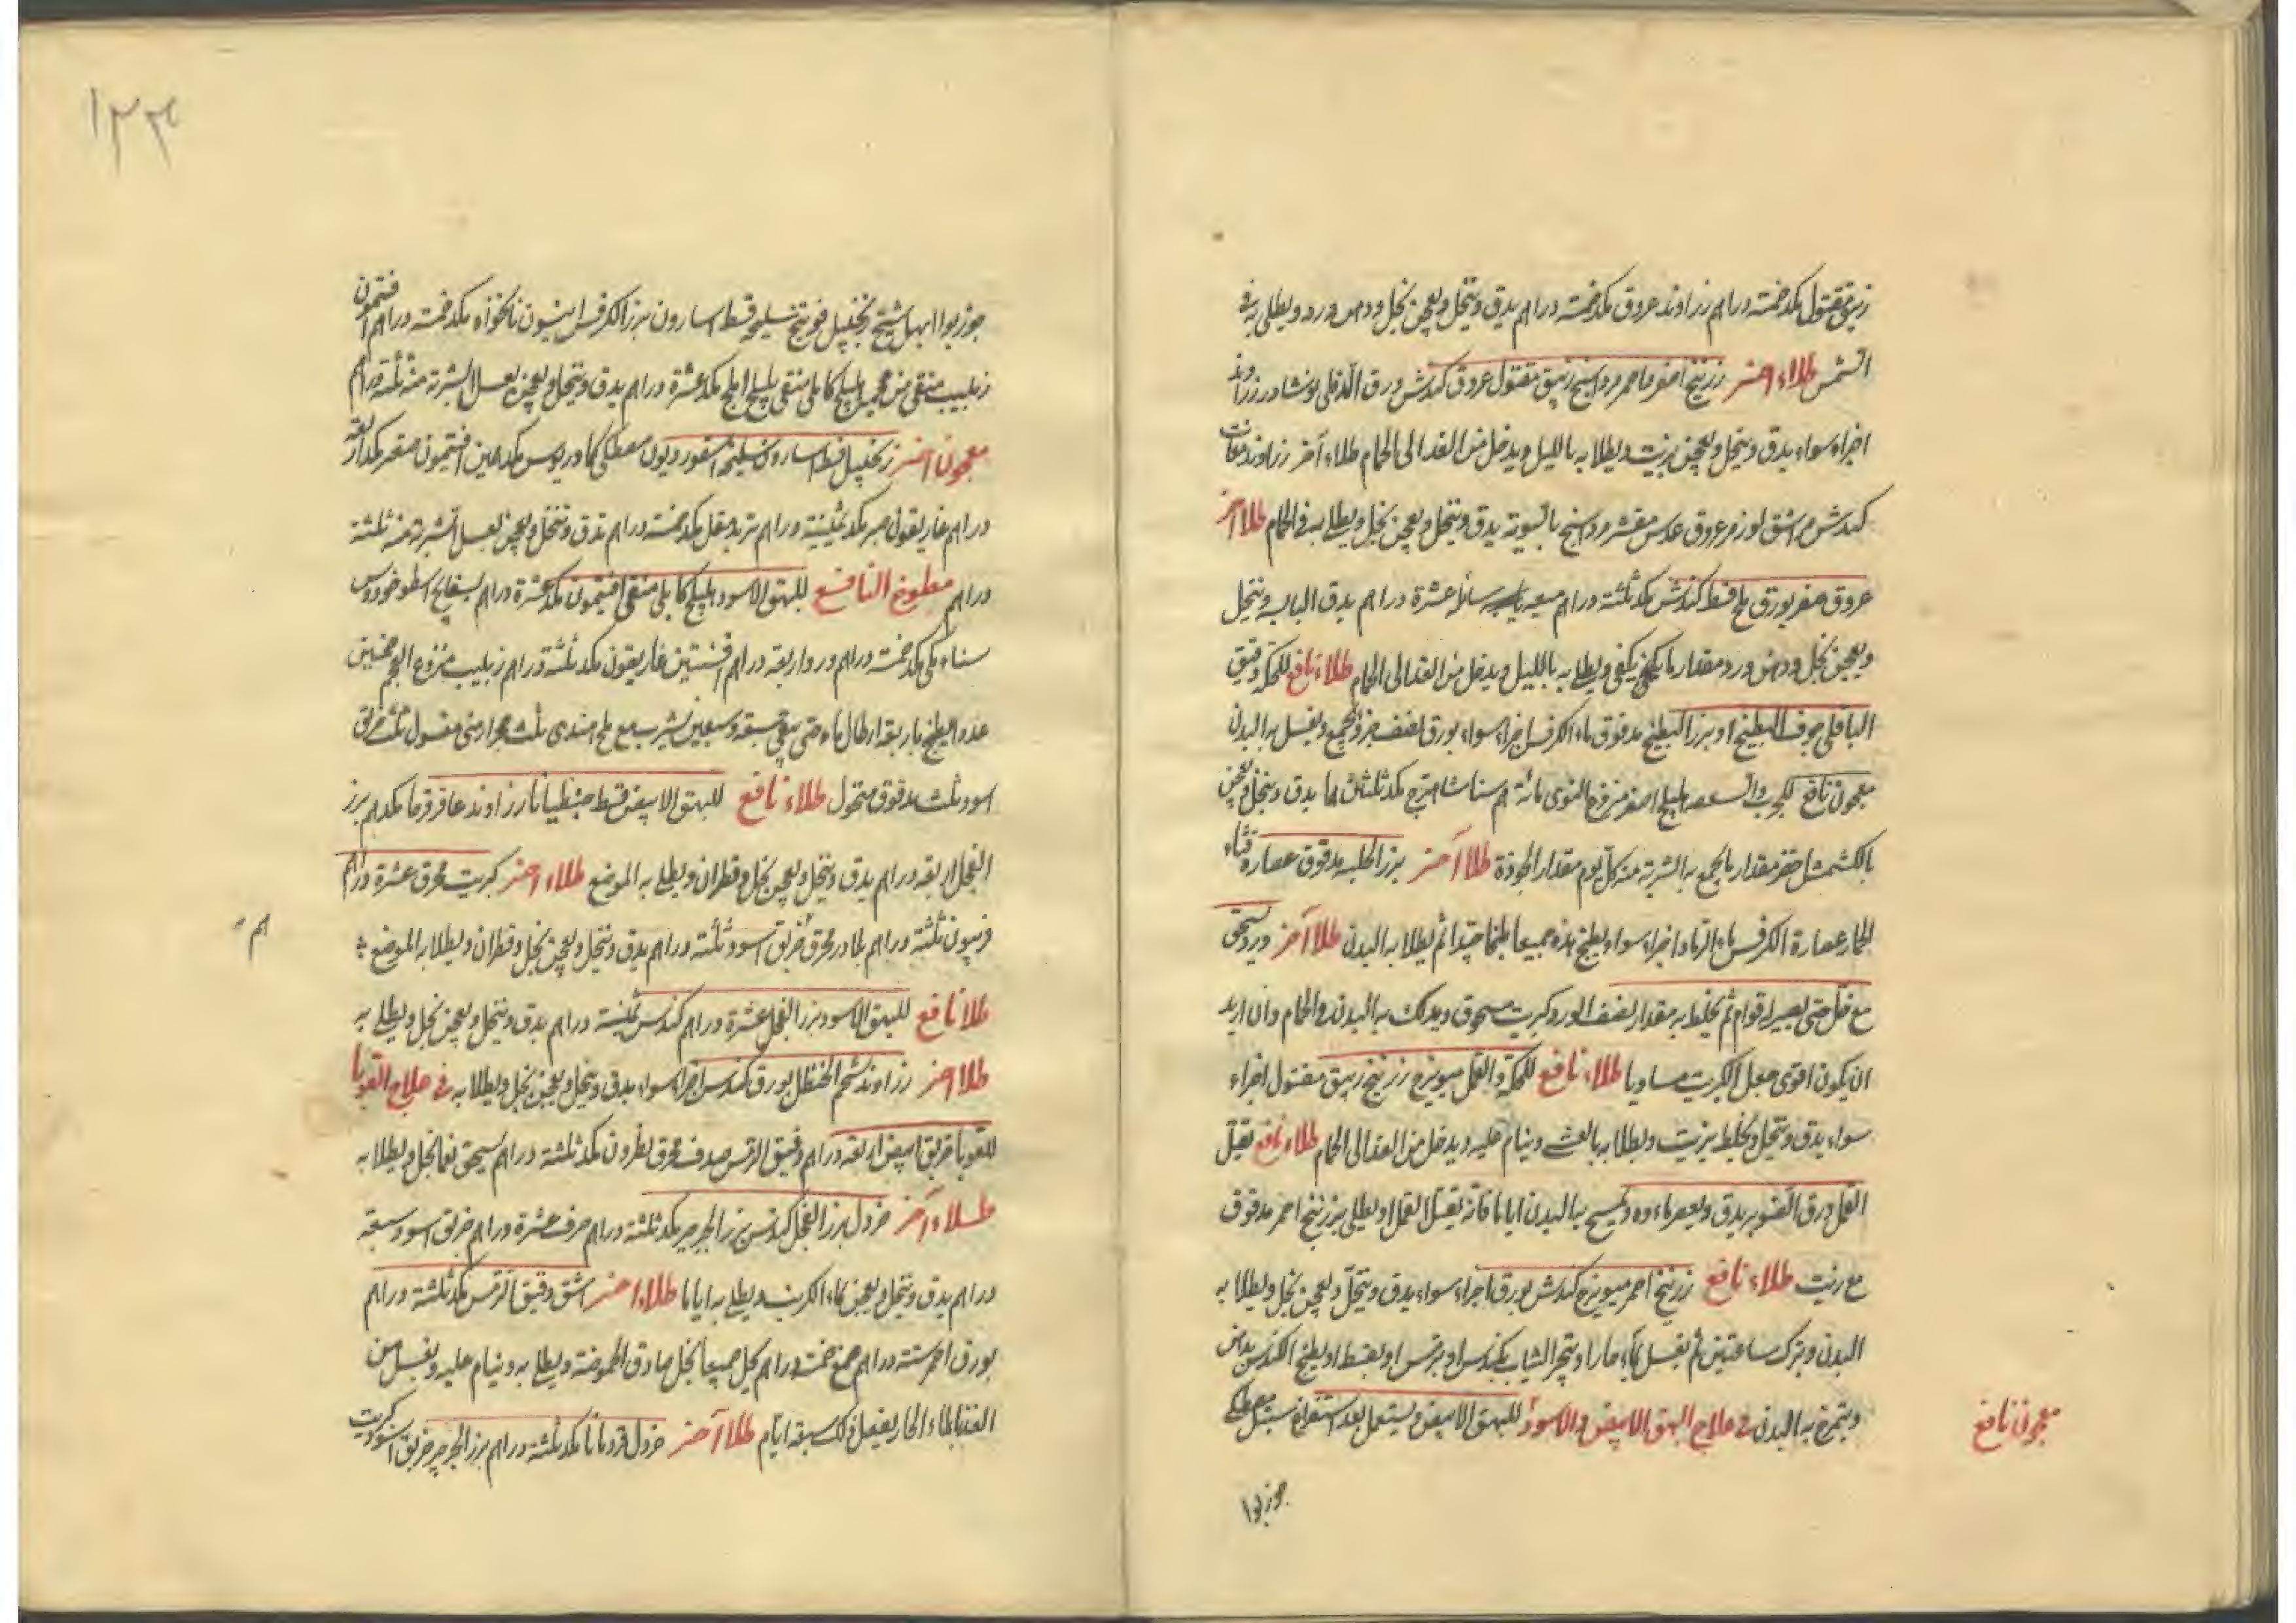 زيبق مقتول مكد خمسة دراهم زراوند عروق مكد خمسة دراهم يدق وينخل ويعجن بخل ودهن ورد ويطلى به في
الشمس طلاء آخر زرنيخ اصفر واحمر مرداسنج زيبق مقتول عروق كندش ورق الدفلى نوشادر زراوند
اجزاء سواء يدق وينخل ويعجن بزيت ويطلا به بالليل ويدخل من الغد الى الحمام طلاء آخر زراوند
كندش اشق لوز مر عروق عدس مقشر مرداسنج بالسوية يدق وينخل ويعجن بخل ويطلا به في الحمام طلا آخر
عروق صفر بورق ملح قسط كندش مكد ثلثة دراهم ميعه سايلة عشرة دراهم يدق اليابسه وينخل
ويعجن بخل ودهن ورد مقدار ما يكفي ويطلى به بالليل ويدخل من الغد الى الحمام طلاء نافع للحكة دقيق
الباقلى جوف البطيخ او بزر البطيخ مدقوق ماء الكرفس اجزاء سواء بورق نصف جزؤ يجمع ويغسل به البدن
معجون نافع للجرب والسعفه هليلج اصفر منزوع النوى مائة درهم سنا شاهترج مكد ثلثان يدق وينخل ويعجن
بالكشمش احمر مقدار ما يجمع به الشربة منه كل يوم مقدار الجوزة طلا آخر بزر الحلبه مدقوق عصارة قثاء
الحمار عصارة الكرفس ماء الرماد اجزاء سواء يطبخ هذه جميعا طبخا جيدا ثم يطلا به البدن طلا آخر ورد يسحق
مع خل حتى يصير له قوام ثم يخلط به مقدار نصف الورد كبريت مسحوق ويدلك به البدن في الحمام وان اريد
ان يكون اقوى جعل الكبريت مساويا طلاء نافع للحكة والقمل ميويزج زرنيخ زيبق مقتول اجزاء
سواء يدق وينخل ويخلط بزيت ويطلا به بالعشى وينام عليه ويدخل من الغد الى الحمام طلاء نافع يقتل
القمل ورق الصنوبر يدق ويعصر ماءه ويمسح به البدن اياما فانه يقتل القمل او يطلى بزرنيخ احمر مدقوق
مع زيت طلاء نافع زرنيخ احمر ميويزج كندش بورق اجزاء سواء يدق وينخل ويعجن بخل ويطلا به
البدن ويترك ساعتين ثم يغسل بماء حار او يبخر الثياب بكندس او بترمس او بقسط او يطبخ الكندس بدهن
ويتمرخ به البدن في علاج البهق الابيض والاسود للبهق الابيض ويستعمل بعد استفراغ سنبل مصطكى
معجون نافع
جوز بوا
١٣٤
جوز بوا ابهل شيح زنجبيل فوتنج سليخه قسط اسارون بزر الكرفس انيسون نانخواه مكد خمسة دراهم افتيمون
زبيب منقى من عجمه هليلج كابلى منقى بليلج املج مكد عشرة دراهم يدق وينخل ويعجن بعسل الشربة منه ثلثة دراهم
معجون آخر زنجبيل قسط اسارون سليخه اسقورديون مصطكى كمادريوس مكد افتيمون صعتر مكد اربعة
دراهم غاريقون صبر مكد ثمنية دراهم تربد مقل مكد خمسة دراهم يدق وينخل ويعجن بعسل الشربة منه ثلثة
دراهم مطبوخ النافع للبهق الاسود هليلج كابلى منقى افتيمون مكد عشرة دراهم بسفايج اسطوخودوس
سناء مكى مكد خمسة دراهم ورد اربعة دراهم افسنتين غاريقون مكد ثلثة دراهم زبيب منزوع العجم خمسين
عددا يطبخ باربعة ارطال ماء حتى يبقى سبعة وسبعين يشرب مع ملح هندى ثلث حجر ارمنى مغسول ثلث خربق
اسود ثلث مدقوق منخول طلاء نافع للبهق الابيض قسط جنطيانا زراوند عاقرقرحا مكدرهم بزر
الفجل اربعة دراهم يدق وينخل ويعجن بخل وقطران ويطلى به الموضع طلاء آخر كبريت محرق عشرة دراهم
فربيون ثلثة دراهم بلادر محرق خربق اسود ثلثة دراهم يدق وينخل ويعجن بخل وقطران ويطلا به الموضع
طلا نافع للبهق الاسود بزر الفجل عشرة دراهم كندس ثمنية دراهم يدق وينخل ويعجن بخل ويطلى به
طلا آخر زراوند شحم الحنظل بورق كندس اجزاء سواء يدق وينخل ويعجن بخل ويطلا به في علاج القوبا
للقوبا خربق ابيض اربعة دراهم دقيق الترمس صدف محرق نطرون مكد ثلثة دراهم يسحق نعما بخل ويطلا به
طلاء آخر خردل بزر الفجل كندس بزر الجرجير مكد ثلثة دراهم حرف عشرة دراهم خربق اسود سبعة
دراهم يدق وينخل ويعجن بماء الكرنب ويطلى به اياما طلاء آخر اشق دقيق الترمس مكد ثلثة دراهم
بورق احمر ستة دراهم صمغ خمسة دراهم يحل جميعا بخل صادق الحموضة ويطلى به وينام عليه ويغسل من
الغد بالماء الحار يفعل ذلك سبعة ايام طلا آخر خردل قردمانا مكد ثلثة دراهم بزر الجرجير خربق اسود كبريت